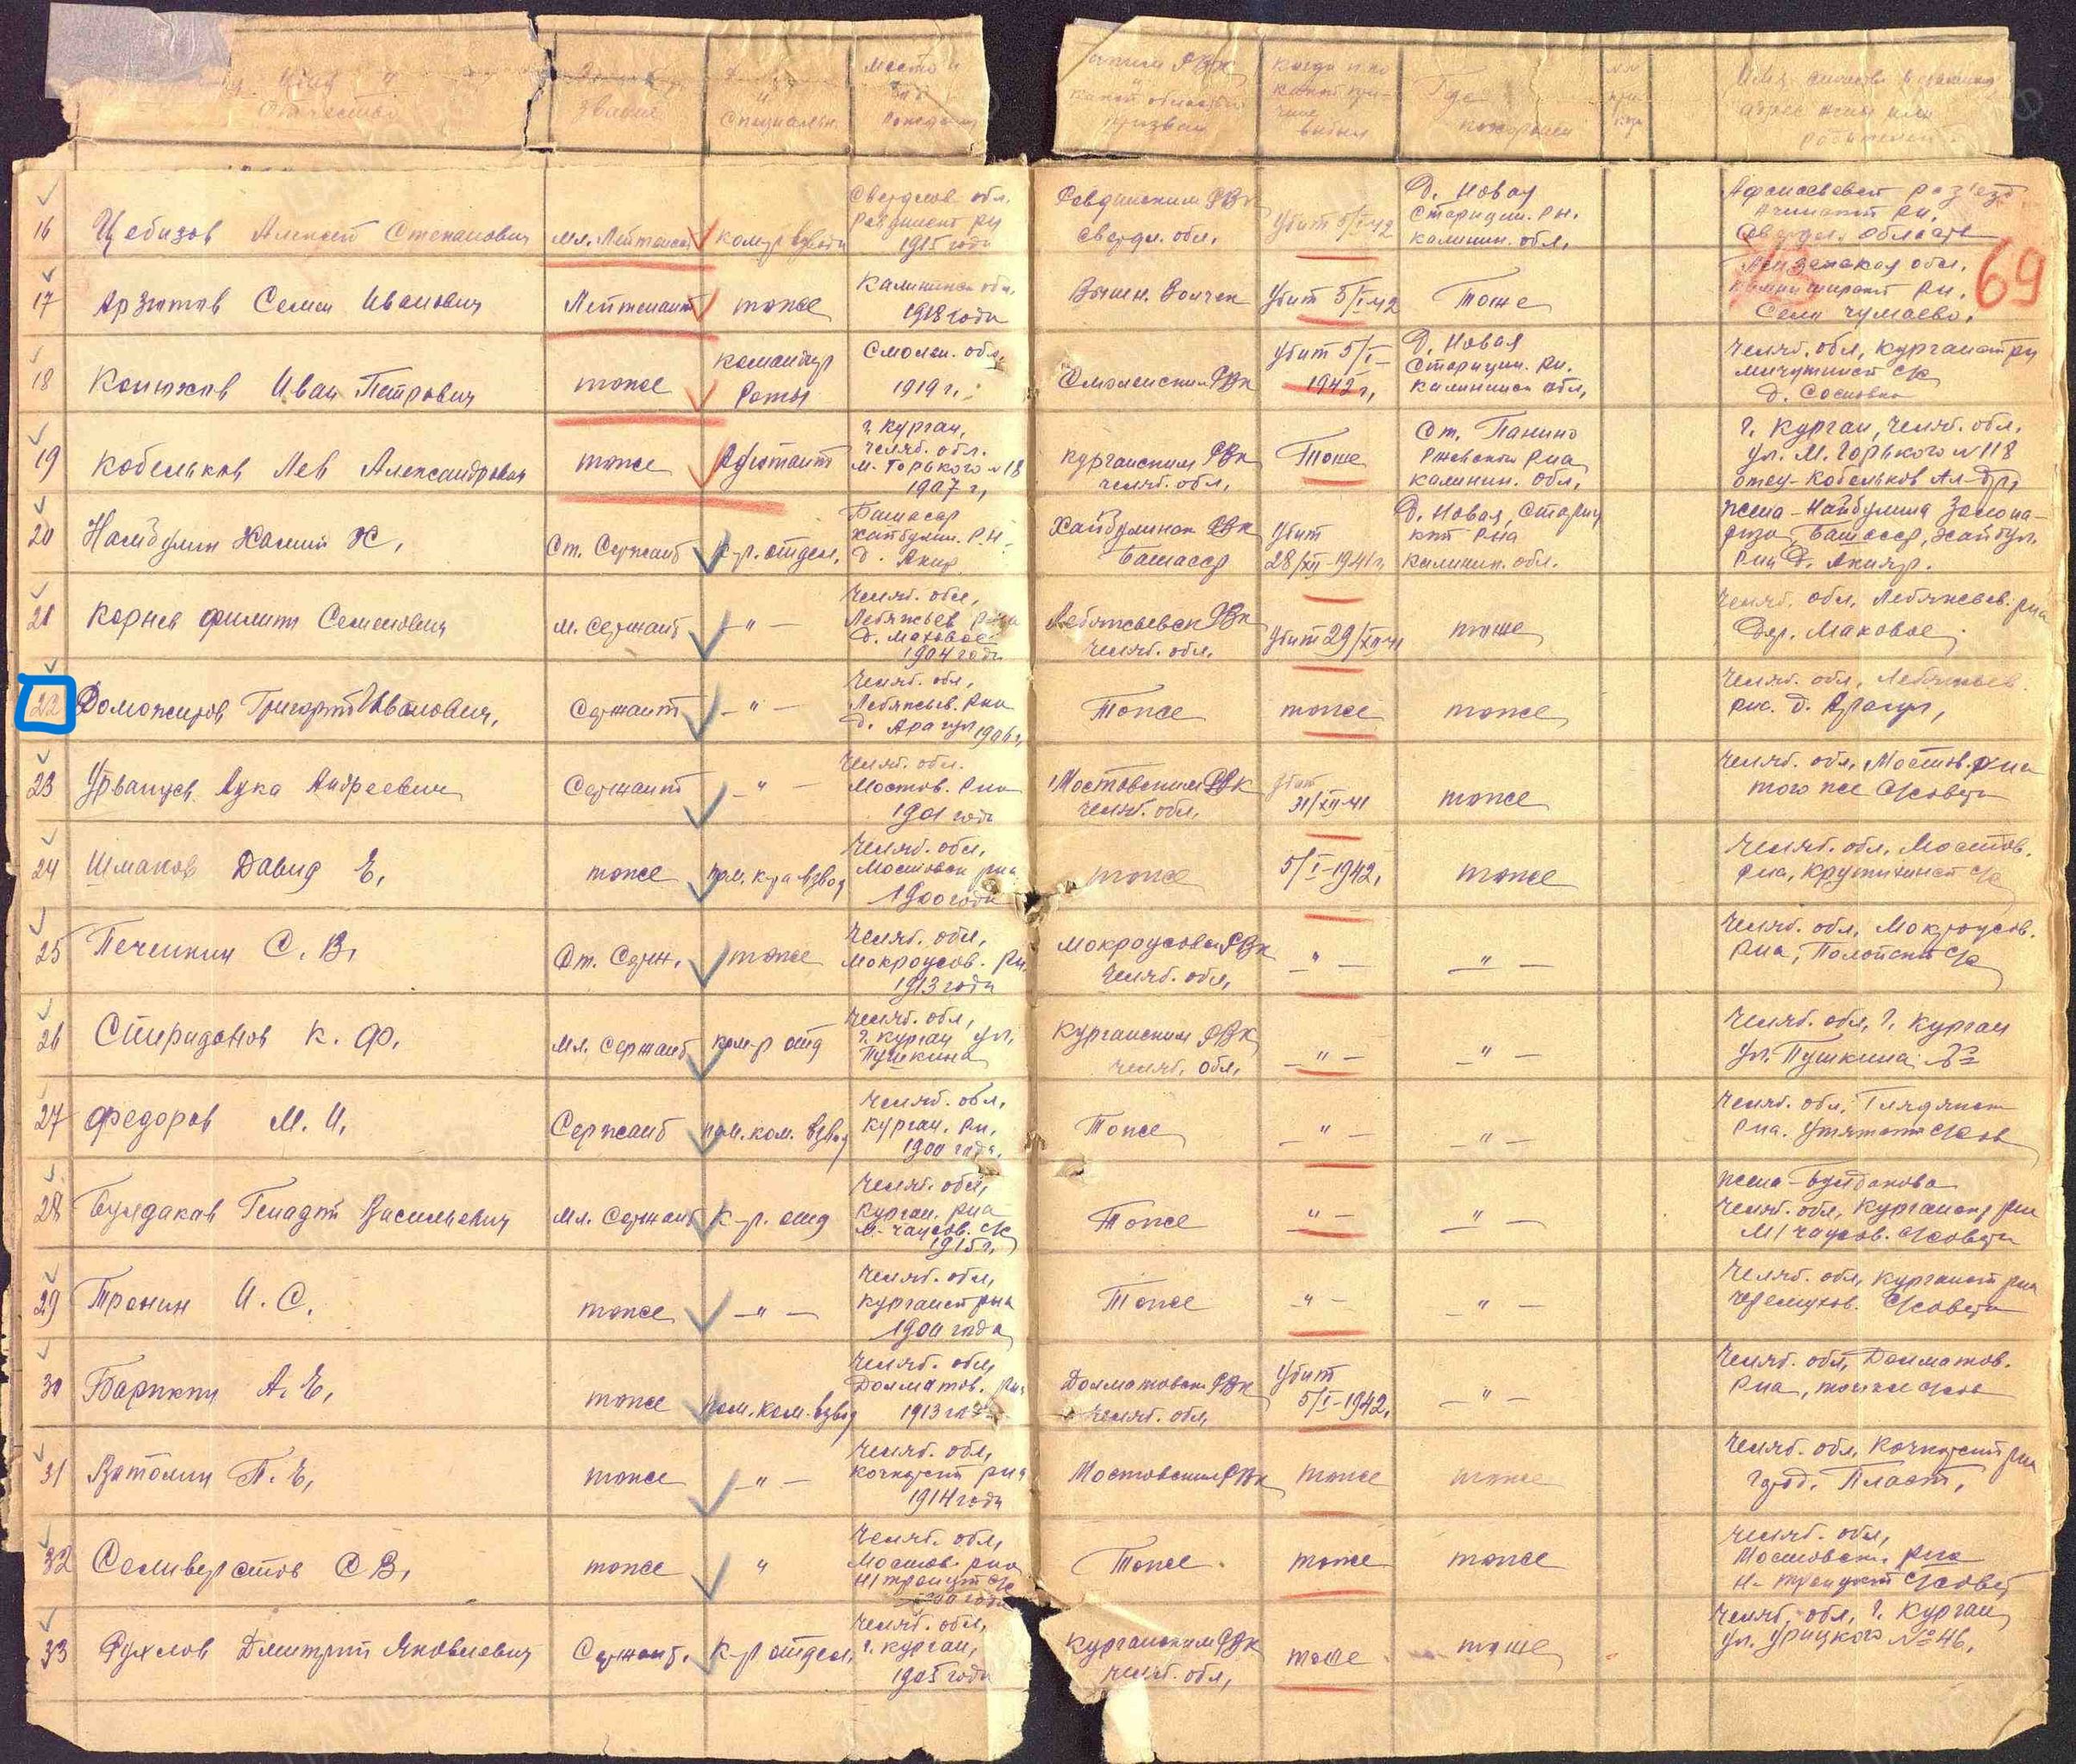 Имя и
Отчество
Звание
Специальн.
Место и
год
рожден.
каким РВК
какой области
призван
Когда и по
какой при-
чине
выбыл
Где
похоронен
Имя, отчество и фамилия
адрес жены или
родителей
69
16 Цебизов Алексей Степанович мл. Лейтенант ком-р взвода
Свердлов. обл.
1915 года
Ревдинским РВК
Свердл. обл.
Убит 5/I-42
Д. Новая
Старицк. рн.
калинин. обл.
разъезд
Ачитский рн.
Свердл. область
17 Арзютов Семен Иванович Лейтенант тоже
Калининск обл.
1918 года
Вышн. Волчек Убит 5/I-42 Тоже
Пензенская обл.
рн.
Село Чумаево.
18 Конюхов Иван Петрович тоже
командир
Роты
Смолен. обл.
1919 г.
Смоленским РВК
Убит 5/I-
1942 г.
Д. Новая
Старицк. рн.
калининск обл.
Челяб. обл, Курганский рн
мичуринск с/с
д. Сосновка
19 Кобельков Лев Александрович тоже Адъютант
г. Курган,
Челяб. обл.
М. Горького №18
1907 г.
Курганским РВК
челяб. обл.
Тоже
Ст. Панино
Ржевского р-на
калинин. обл.
г. Курган, Челяб. обл.
ул. М. Горького №118
отец-Кобельков Ал-др.
20 Наибулин Халим Х. Ст. Сержант к-р. отдел.
Башасср
Хайбулин. р-н
д. Акъяр
Хайбулинск РВК
Башасср
Убит
28/XII-1941 г.
Д. Новая, Стариц
кий р-на
калинин. обл.
жена-Наибулина
Башасср, Хайбул.
р-на Д. Акъяр.
21 Корнев Филипп Семенович м. сержант -"-
Челяб. обл.
Лебяжьев р-на
Д. Маковое
1904 года
Лебяжьевск РВК
Челяб. обл.
Убит 29/XII-41 тоже
Челяб. обл. Лебяжьев. р-на
Дер. Маковое
22 Доможиров Григорий Иванович, Сержант -"-
Челяб. обл,
Лебяжьев. р-на
д. Арагул 1906 г.
Тоже тоже тоже
Челяб. обл, Лебяжьев.
р-на. д. Арагул,
23 Урванцев Лука Андреевич Сержант -"-
Челяб. обл.
Мостов. р-на
1901 года
Мостовским РВК
Челяб. обл.
Убит
31/XII-41
тоже
Челяб. обл. Мостов. р-на
того же с/совета
24 Шмаков Давид Е. тоже пом. к-ра взвод
Челяб. обл.
Мостовск р-на
1900 года
тоже 5/I-1942. тоже
Челяб. обл. Мостов.
р-на, Крутихинск с/с
25 Печенкин С. В. Ст. Серж. тоже
Челяб. обл,
Мокроусов. рн,
1913 года
Мокроусовск РВК
Челяб. обл,
-"- -"-
Челяб. обл, Мокроусов.
р-на, Полойский с/с
26 Спиридонов К. Ф. Мл. Сержант ком-р отд
Челяб. обл,
г. Курган ул.
Пушкина
Курганским РВК
челяб. обл,
-"- -"-
Челяб. обл, г. Курган
ул. Пушкина
27 Федоров М. И. Сержант пом. ком. взвод
Челяб. обл,
Курган. рн,
1900 года.
Тоже -"- -"-
Челяб. обл. Глядянск
р-на. Утятский с/сов
28 Булдаков Генадий Васильевич Мл. Сержант К-р. отд
Челяб. обл,
Курган. р-на
М-чаусов. с/с
1915 г.
Тоже -"- -"-
жена-Булдакова
Челяб. обл, Курганск р-на
М/чаусов. с/совета
29 Тронин И. С. тоже -"-
Челяб. обл,
Курганский р-на
1900 года
Тоже -"- -"-
Челяб. обл, Курганск р-на
Черемухов. с/совета
30 А. Е. тоже пом. ком. взвод
Челяб. обл,
Долматов. р-на
1913 года
Долматовск РВК
Челяб. обл,
Убит
5/I-1942.
-"-
Челяб. обл, Долматов.
р-на,
31 Ватолин П. Е. тоже -"-
Челяб. обл,
Кочкарский р-на
1914 года
Мостовским РВК тоже тоже
Челяб. обл, Кочкарский р-на
город. Пласт,
32 Селиверстов С В. тоже "
Челяб. обл,
Мостов. р-на
Н/троицк с/с
года
Тоже тоже тоже
Челяб. обл,
Мостовск. р-на
Н-троицкий с/совет
33 Рухлов Дмитрий Яковлевич Сержант. К-р отдел.
Челяб. обл,
г. Курган,
1905 года
Курганским РВК
челяб. обл,
тоже тоже
Челяб. обл, г. Курган
ул. Урицкого №46.